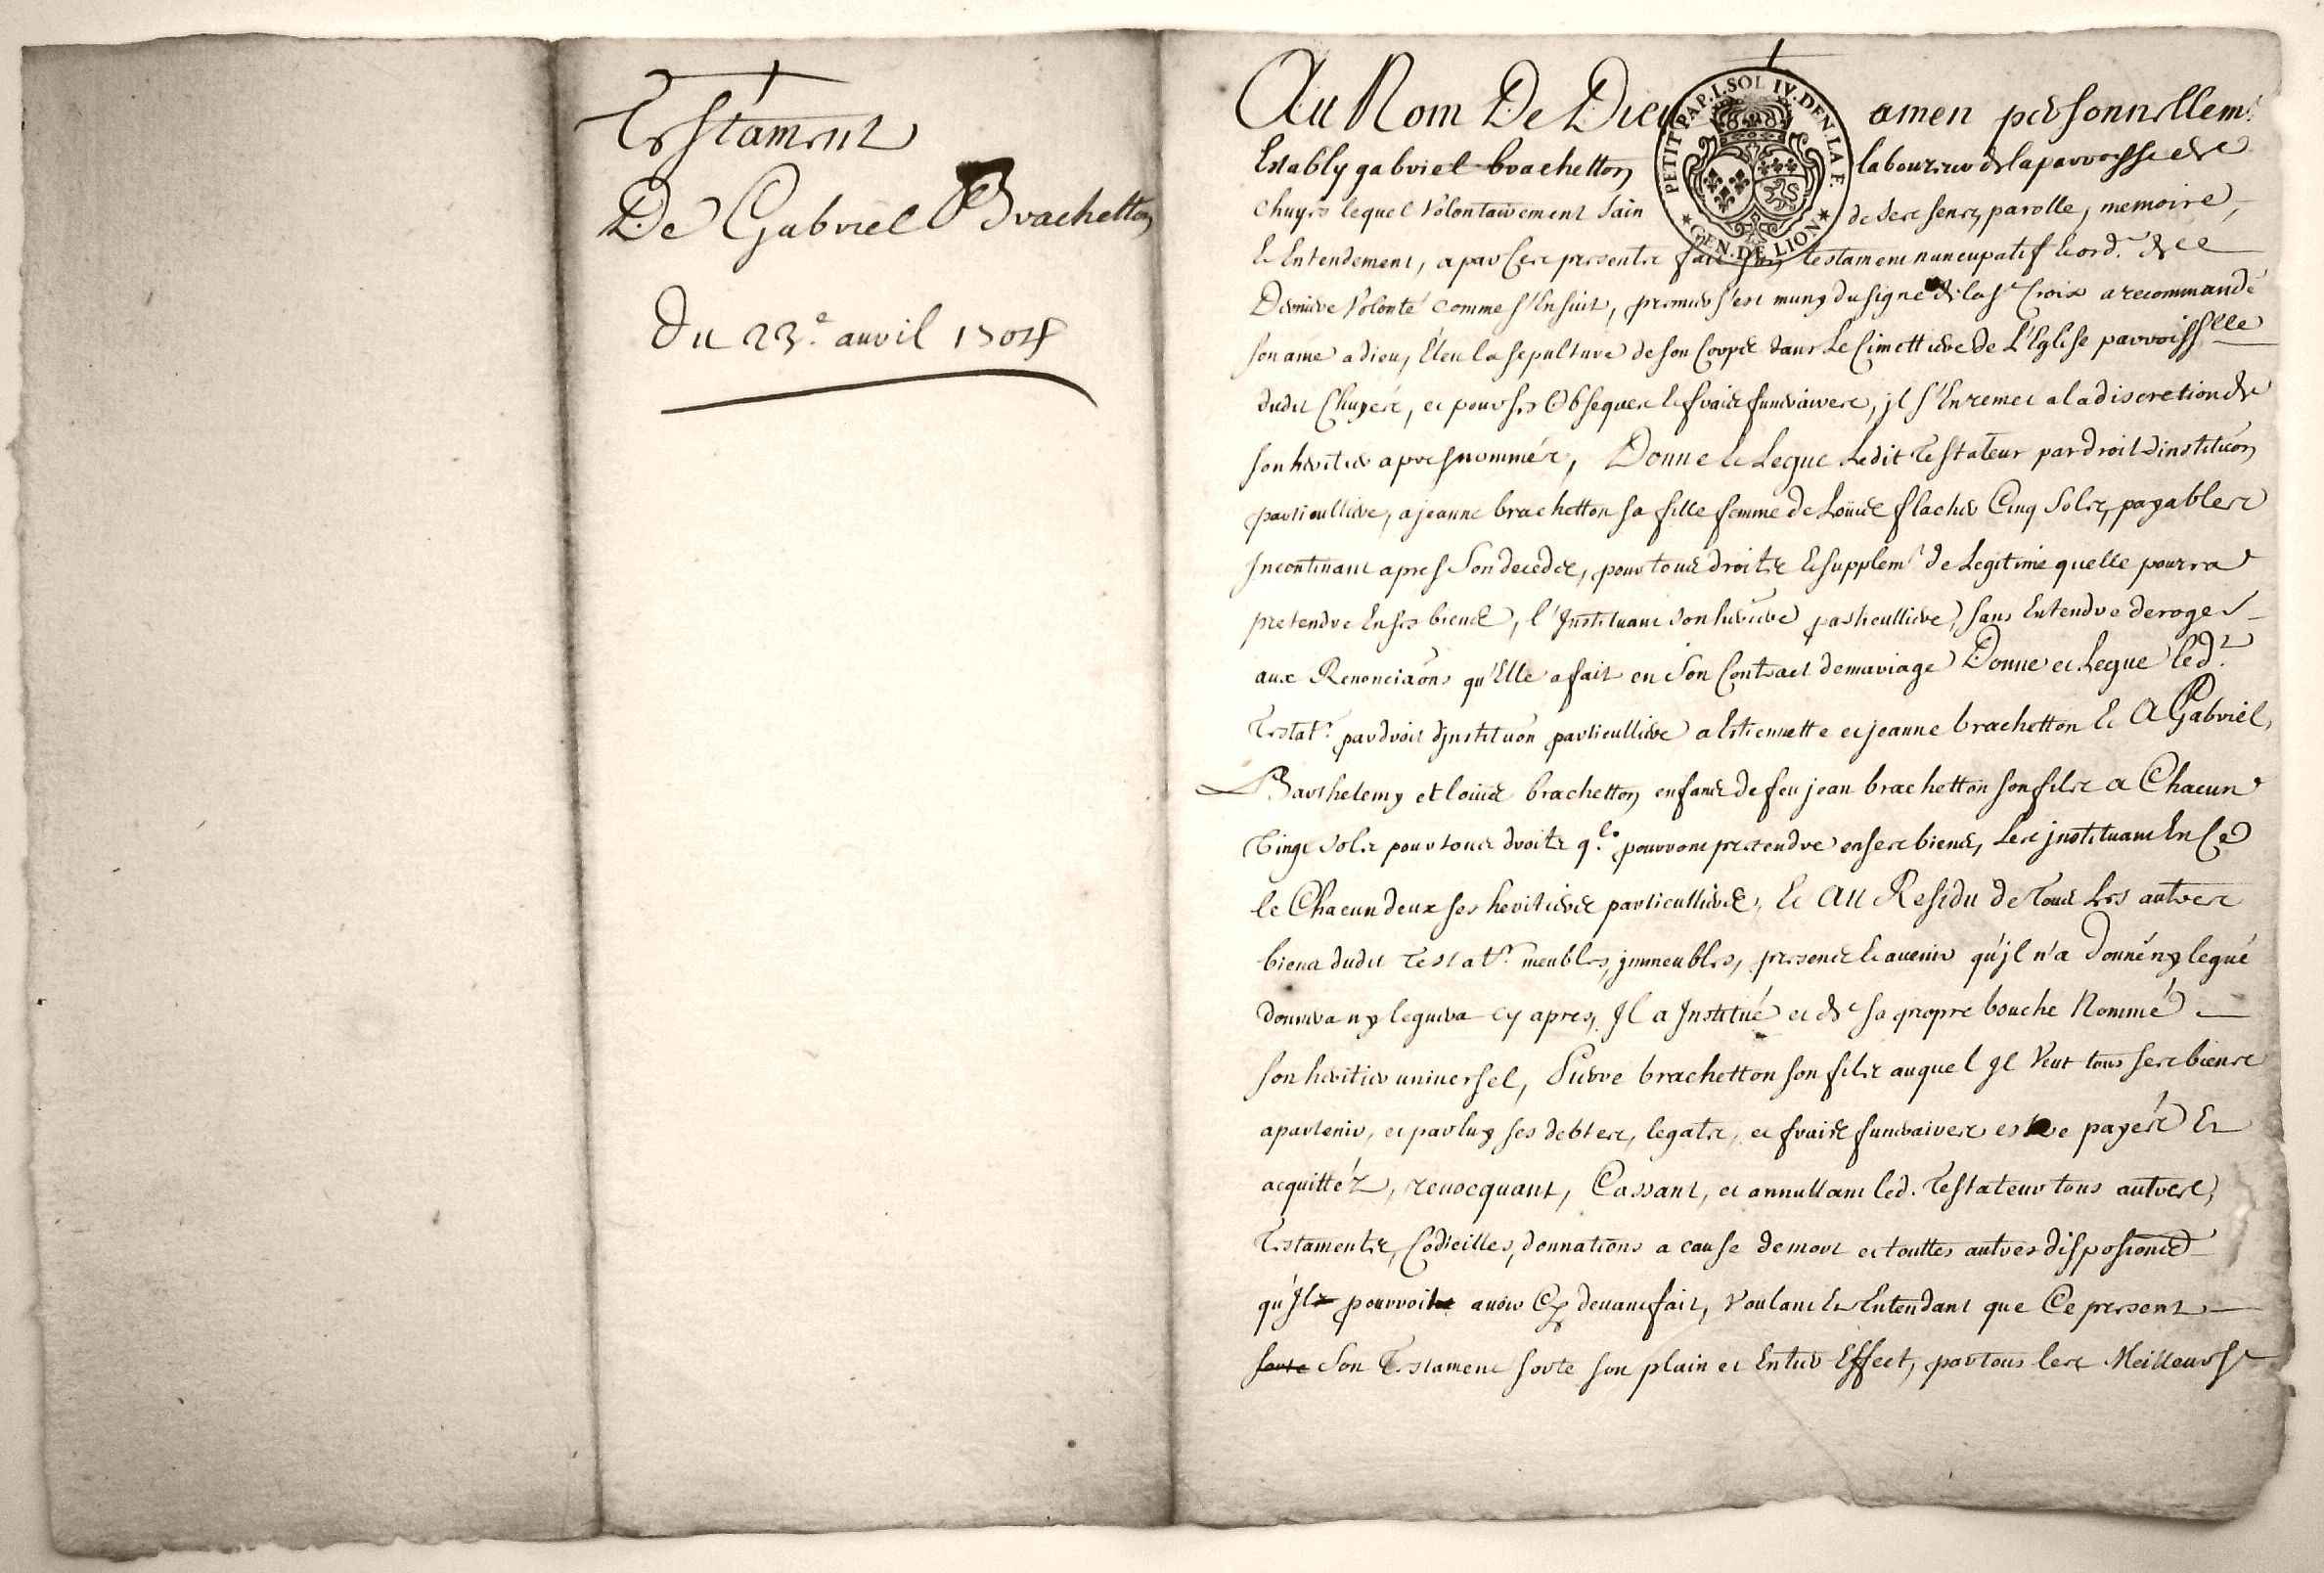 Testament
De Gabriel Brachetton
du 23.e auril 1704
PETIT PAP. I. SOL IV. DEN. LA F.
GEN. DE LION
Au Nom De Dieu amen personnellemt.
Estably gabriel brachetton laboureur de la parroisse de
Chuyes lequel volontairement sain de ses sens, parolle, memoire,
et Entendement, a par Ces presentes fait son testament nuncupatif et ord.re de
Derniere volonté comme s'Ensuit, premier s'est muny du signe de la ste Croix a recommandé
son ame a dieu, Eleu la sepulture de son Coops dans Le Cimettiere de L'Eglise parroisslle
dudit Chuyes, et pour ses Obseques et frais funeraires, jl s'En remet a la discretion de
son heritier apres nommé, Donne et Legue Ledit Testateur par droit d'institution
particulliere, a jeanne brachetton sa fille femme de Loüis flacher Cinq Sols, payables
jncontinant apres Son decedz, pour tous droits et supplemt de Legitime quelle pourra
pretendre En ses biens, l'Instituant son heritiere particulliere, sans Entendre deroger
aux Renonciaons qu'Elle a fait en Son Contract de mariage Donne et Legue led.t
Testatr. par droit d'jnstitution particulliere a Estiennette et jeanne brachetton Et A Gabriel,
Barthelemy et loüis brachetton enfans de feu jean brachetton son fils a Chacun
Cinq Sols pour tous droits q.ls pourront pretendre en ses biens, Les jnstituant En Ce
et Chacun deux ses heritiers particulliers, Et Au Residu de Tous Les autres
biens dudit Testatr. meubles, jmmeubles, presents Et auenir qu'jl n'a Donné ny legué
donnera ny leguera cy apres, Il a Institué et de sa propre bouche Nommé
son heritier uniuersel, Pierre brachetton son fils auquel jl Veut tous ses biens
apartenir, et par luy ses debtes, legats, et frais funeraires estre payés Et
acquittéz, reuocquant, Cassant, et annullant led. Testateur tous autres,
Testaments, Codicilles, donnations a cause de mort et touttes autres disposions
qu'Il pourroit auoir Cy deuant fait, Voulant Et Entendant que Ce present
sorte Son Testament sorte son plain et Entier Effect, par tous les Meilleurs